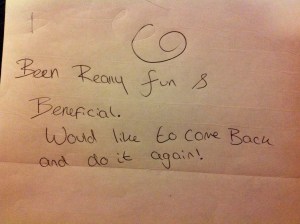 Been Really fun &
Beneficial.
Would like to come Back
and do it again!